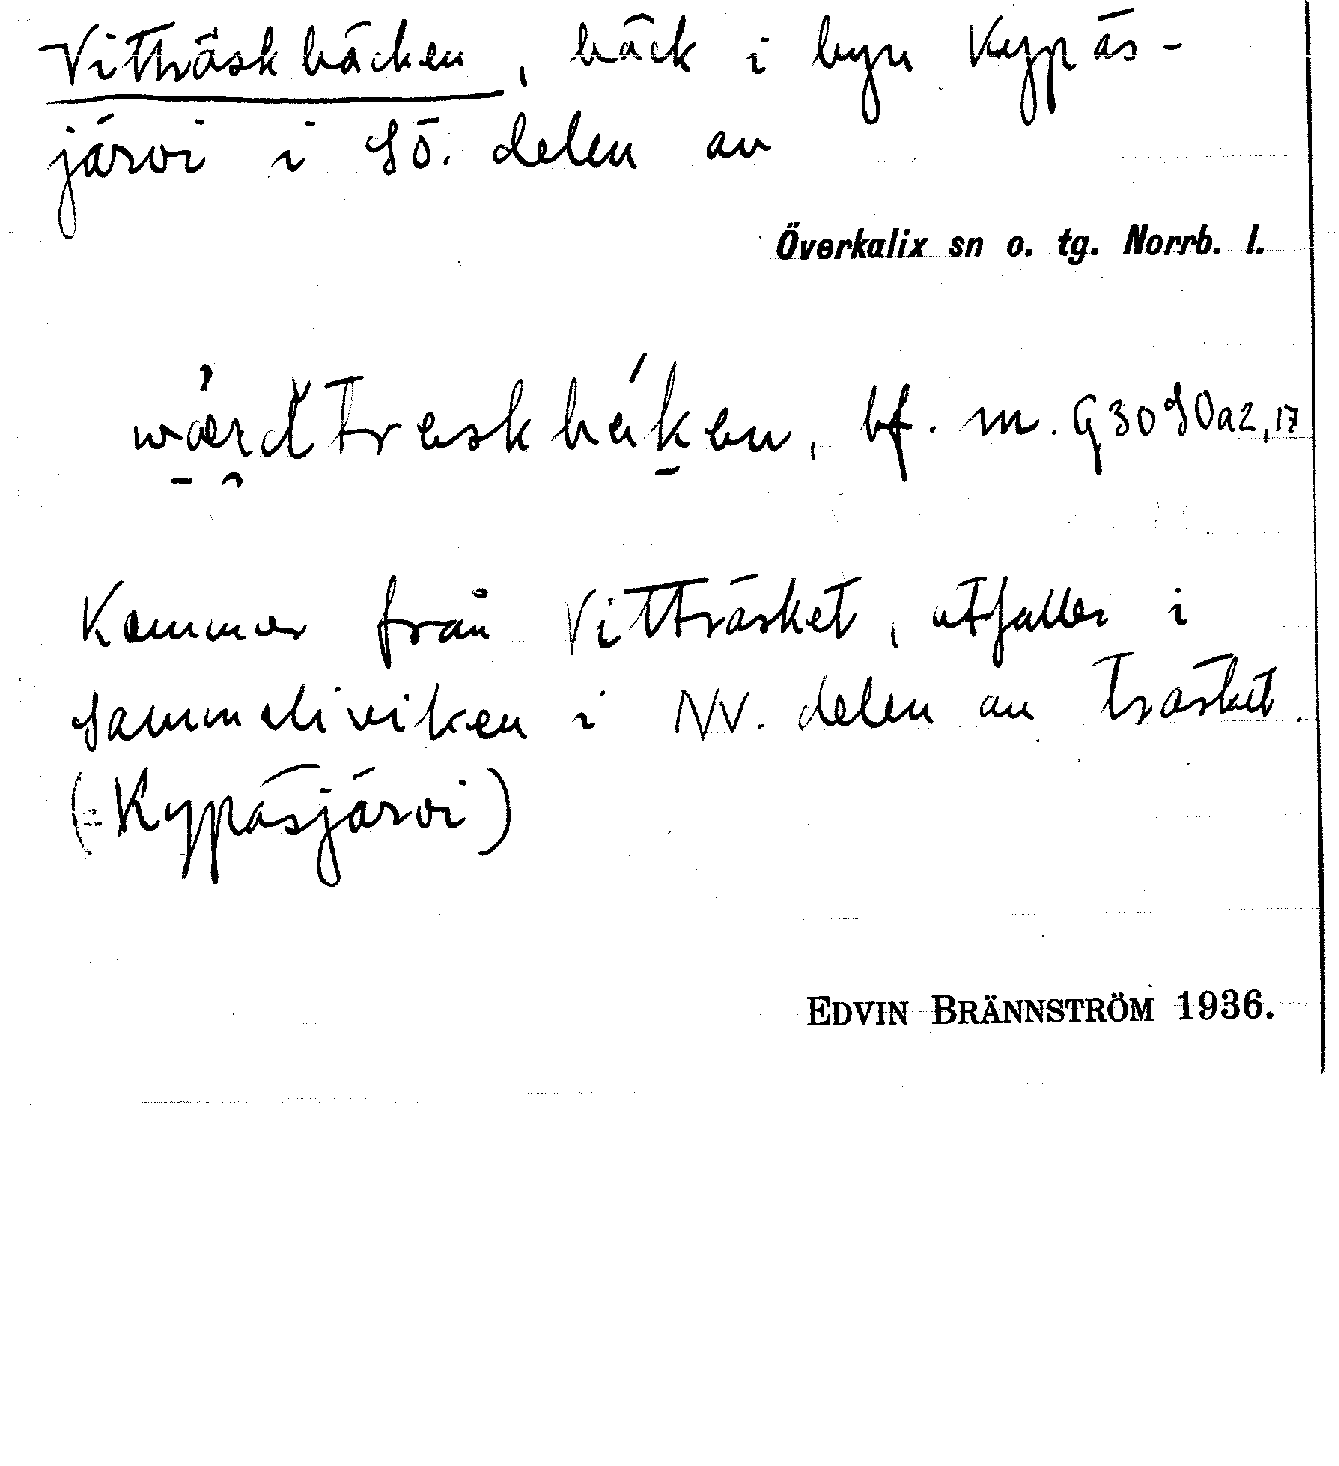 Vitträskbäcken, bäck i byn Kypäs-
järvi i SÖ. delen av
Överkalix sn o. tg. Norrb. l.
bf. m.
Kommer från Vitträsket, utfaller i
Sammeliviken i NV. delen av träsket.
(= Kypäsjärvi)
EDVIN BRÄNNSTRÖM 1936.